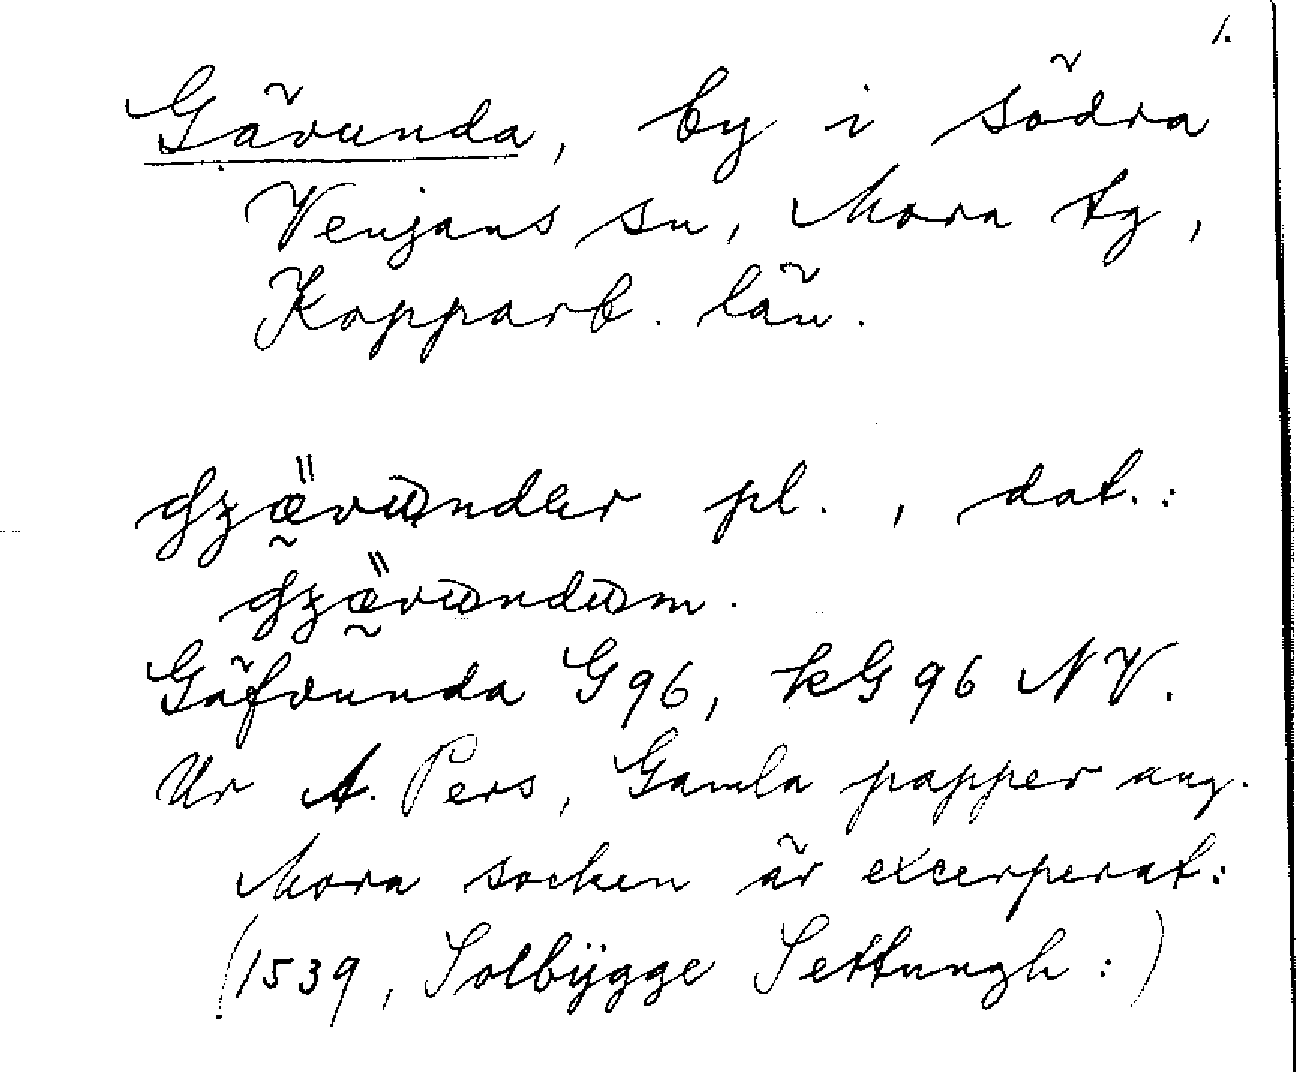 1.
Gävunda, by i södra
Venjans sn, Mora tg,
Kopparb. län.
pl., dat.:
Gäfvunda G96, kG96 NV.
Ur A. Pers, Gamla papper ang.
Mora socken är excerperat:
(1539, Solbÿgge Settungh:)